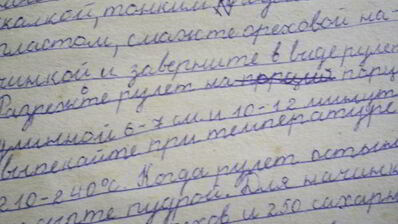 скалкой, тонким
пластом, смажте ореховой на-
чинкой и заверните в виде рулет
Разрежьте рулет на порц
длинной 6-7 см и 10-12 минут
выпекайте при температуре
210-240°С. Когда рулет остын
пудрой. Для начинк
ов и 250 сахарн